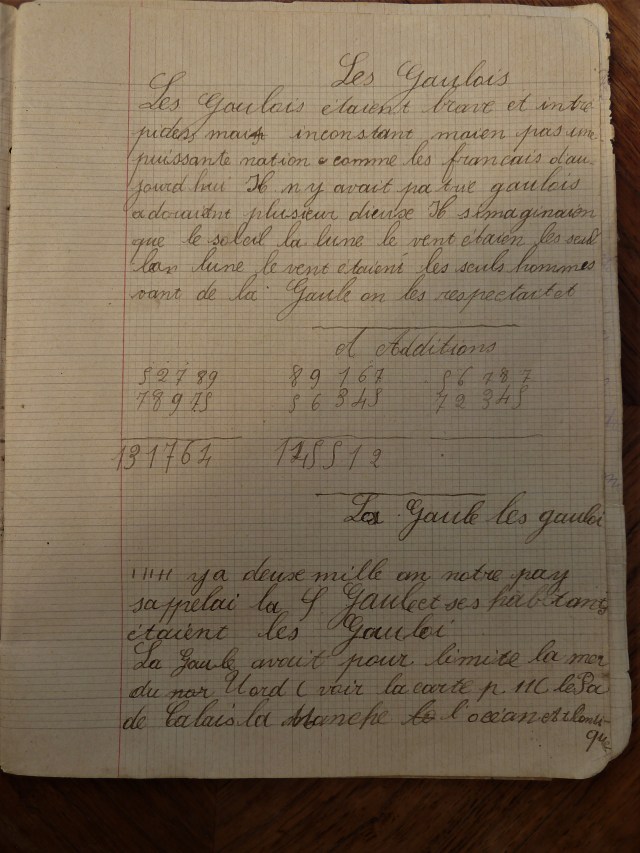 Les Gaulois
Les Gaulois étaient brave et intré
pides, mais inconstant, maien pas une
puissante nation comme les francais d'au-
jourd hui Il n y avait pa tue gaulois
adoraient plusieur dieuxe Il s'imaginaien
que le soleil la lune le vent étaien les seul
lune le vent étaient les seuls hommes
vant de la Gaule on les respectait et
Additions
52789 89167 56787
78975 56345 72345
131764 145512
La Gaule les gauloi
y a deuxe mille an notre pay
sappelai la G Gaule et ses habitants
étaient les Gauloi
La Gaule avait pour limite la mer
du nor Nord (voir la carte p. 11( le Pa
de Calais la Manche l'océan Atlanti-
que